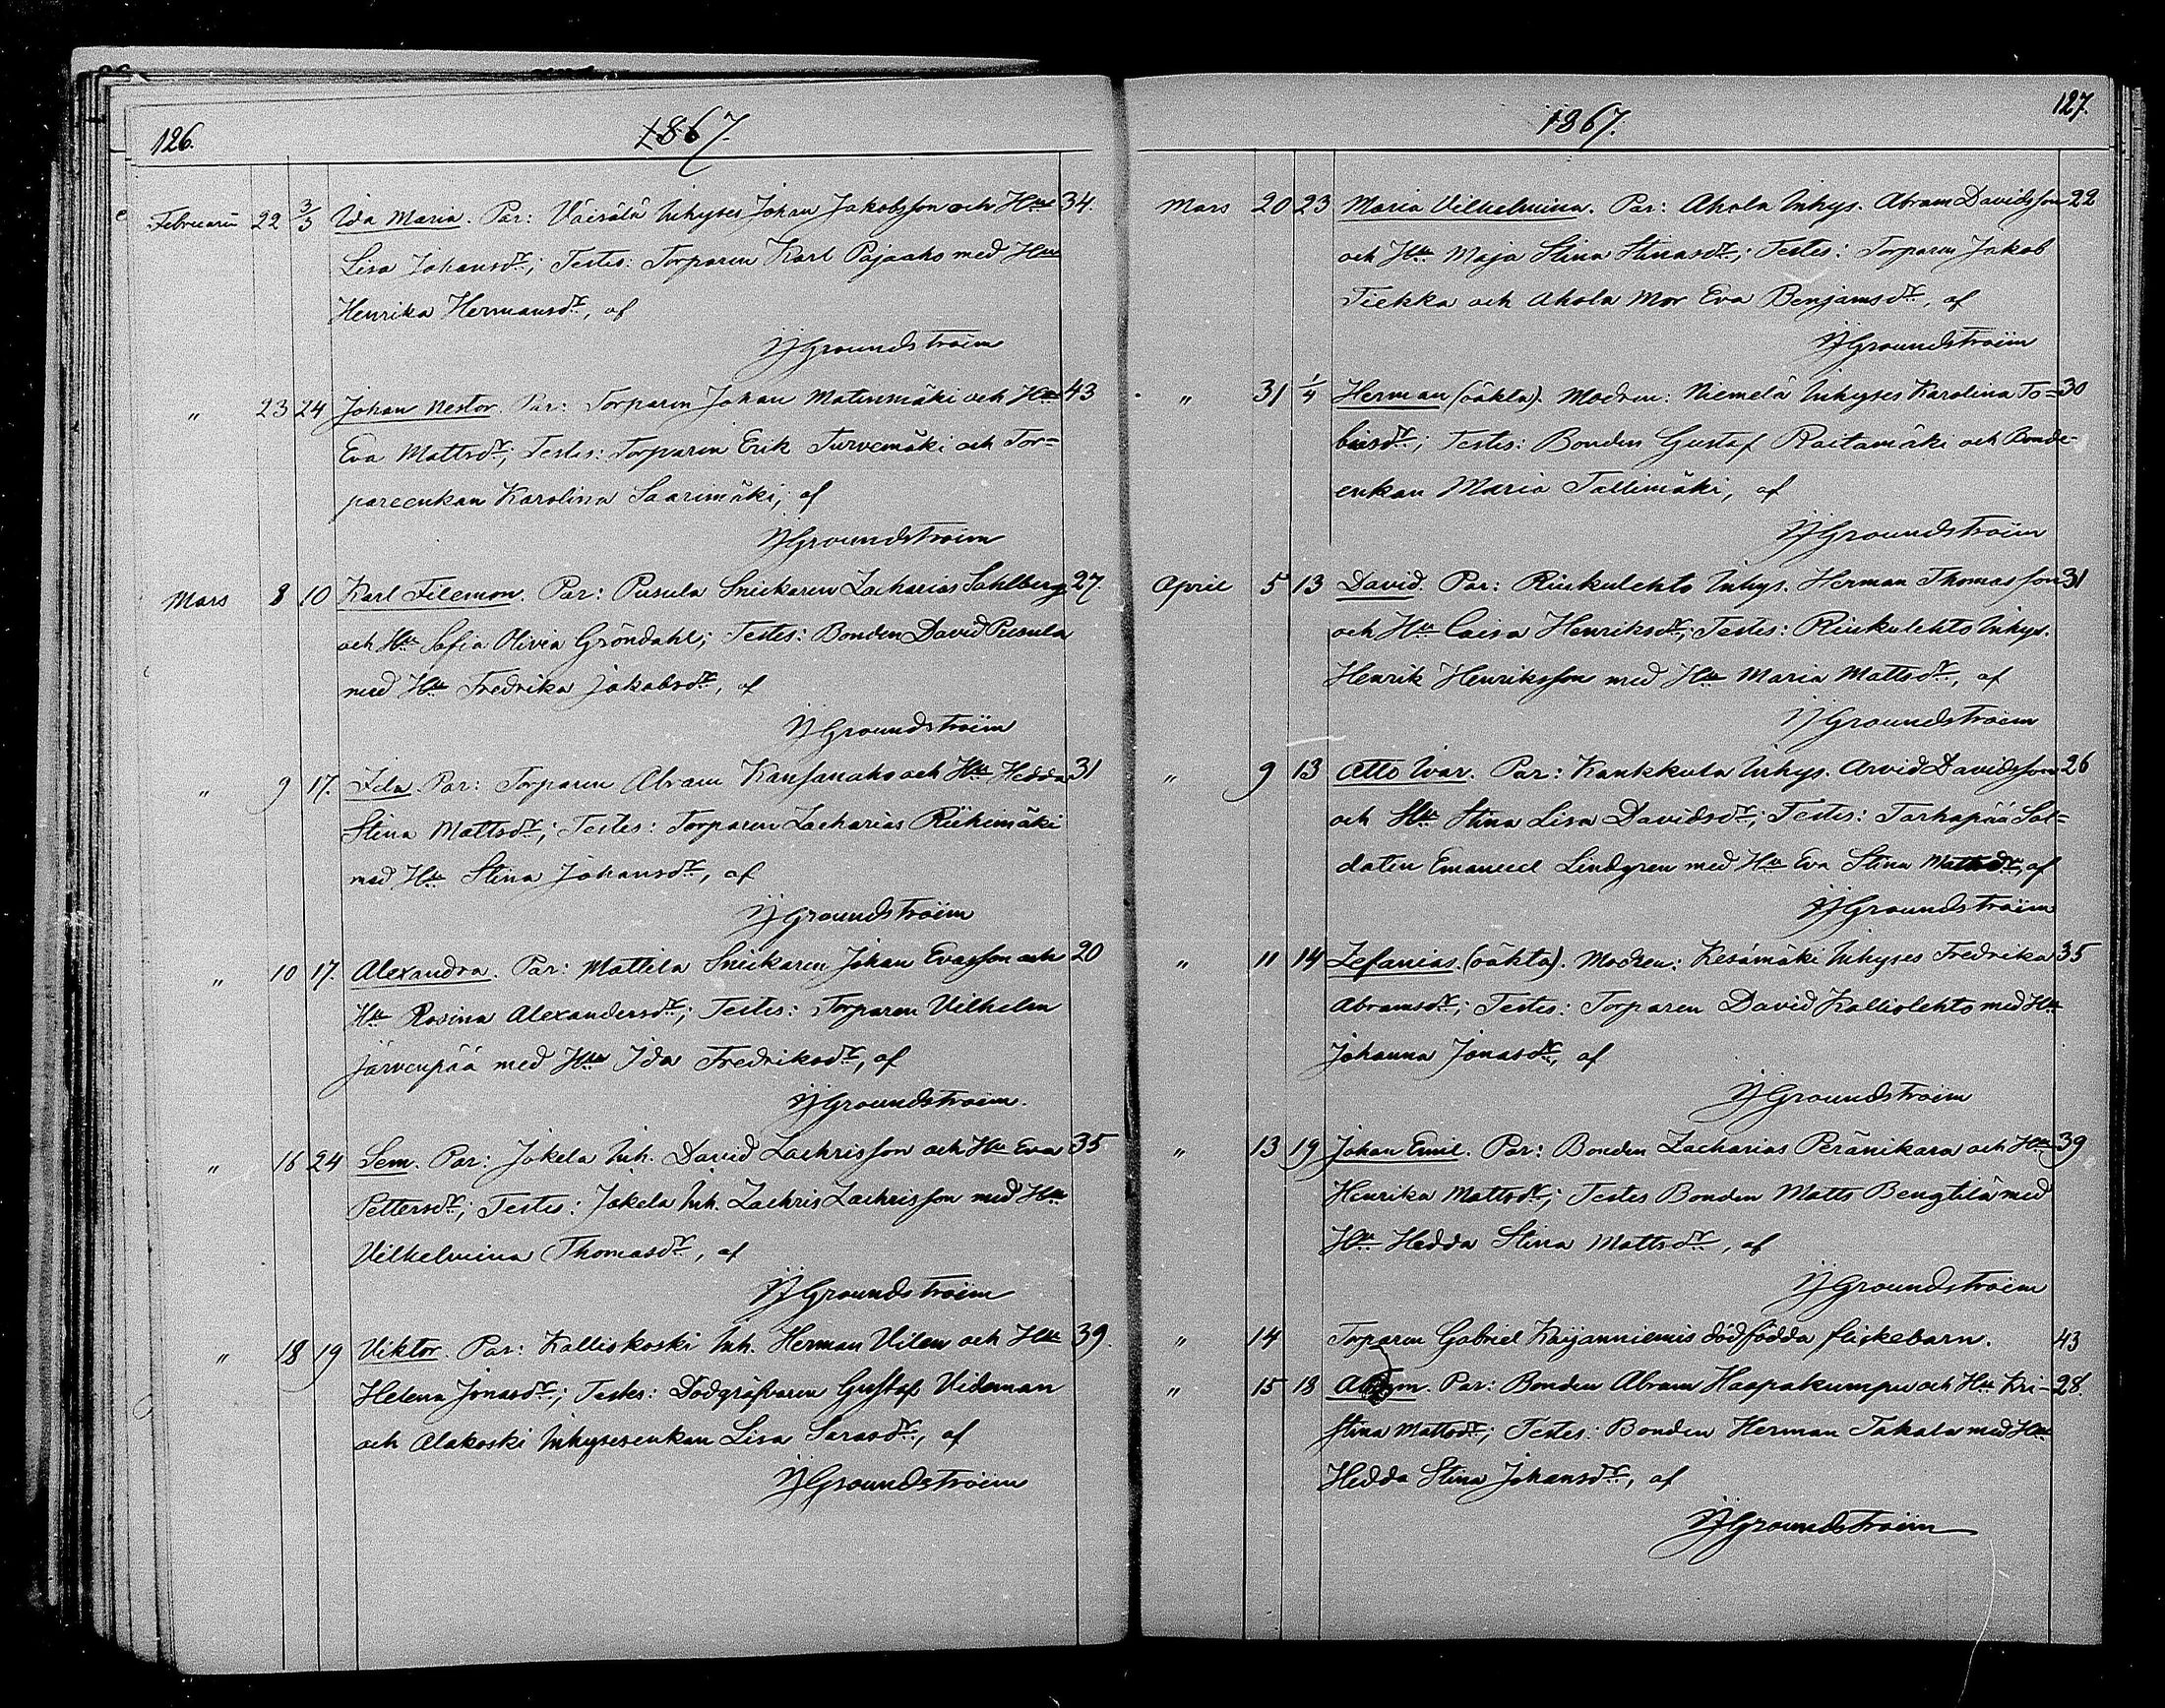 126.
1867.
Februarii 22 3/3 Ida Maria. Par: Väisälä Inhyses Johan Jakobsson och Hu 34.
Lisa Johansdr; Testes: Torparen Karl Pajaaho med Hu
Henrika Hermansdr, af
Groundstroëm
" 23 24 Johan Nestor. Par: Torparen Johan Matinmäki och Hu 43
Eva Mattsdr; Testes: Torparen Erik Turvemäki och Tor=
pareenkan Karolina Saarimäki, af
Groundstroëm
Mars 8 10 Karl Filemon. Par: Pusula Snickaren Zacharias Sahlberg 27.
och Hu Sofia Olivia Gröndahl; Testes: Bonden David Pusula
med Hu Fredrika Jakobsdr, af
Groundstroëm
" 9 17. Ida. Par: Torparen Abram Kansanaho och Hu Hedda 31
Stina Mattsdr; Testes: Torparen Zacharias Riihimäki
med Hu Stina Johansdr, af
Groundstroëm
" 10 17. Alexandra. Par: Mattila Snickaren Johan Evasson och 20
Hu Rosina Alexandersdr; Testes: Torparen Vilhelm
Järvenpää med Hu Ida Fredriksdr, af
Groundstroëm.
" 16 24 Sem. Par: Jokela Inh. David Zachrisson och Hu Eva 35
Pettersdr; Testes: Jokela Inh. Zachris Zachrisson med Hu
Vilhelmina Thomasdr, af
Groundstroëm
" 18 19 Viktor. Par: Kalliokoski Inh. Herman Vilen och Hu 39.
Helena Jonasdr; Testes: Dödgräfvaren Gustaf Videman
och Alakoski Inhysesenkan Lisa Sarasdr, af
Groundstroëm
127.
1867.
Mars 20 23 Maria Vilhelmina. Par: Ahola Inhys. Abram Davidsson 22
och Hu Maja Stina Stinasdr; Testes: Torparen Jakob
Tiekka och Ahola Mor Eva Benjamsdr, af
Groundstroëm
" 31 1/4 Herman (oäkta). Modren: Niemelä Inhyses Karolina To= 30
biasdr; Testes: Bonden Gustaf Raitamäki och Bonde-
enkan Maria Tallimäki, af
Groundstroëm
April 5 13 David. Par: Riukulehto Inhys. Herman Thomasson 31
och Hu Caisa Henriksdr; Testes: Riukulehto Inhys.
Henrik Henriksson med Hu Maria Mattsdr, af
Groundstroëm
" 9 13 Otto Ivar. Par: Kankkula Inhys. Arvid Davidsson 26
och Hu Stina Lisa Davidsdr; Testes: Tarhapää Sol=
daten Emanuel Lindgren med Hu Eva Stina Mattsdr, af
Groundstroëm
" 11 14 Zefanias. (oäkta). Modren: Kesämäki Inhyses Fredrika 35
Abramsdr; Testes: Torparen David Kalliolehto med Hu
Johanna Jonasdr, af
Groundstroëm
" 13 19 Johan Emil. Par: Bonden Zacharias Peränikara och Hu 39
Henrika Mattsdr; Testes Bonden Matts Bengtilä med
Hu Hedda Stina Mattsdr, af
Groundstroëm
" 14 Torparen Gabriel Kaijanniemis dödfödda flickebarn. 43
" 15 18 Par: Bonden Abram Haapakumpu och Hu Kri- 28.
stina Mattsdr; Testes: Bonden Herman Takala med Hu
Hedda Stina Johansdr, af
Groundstroëm